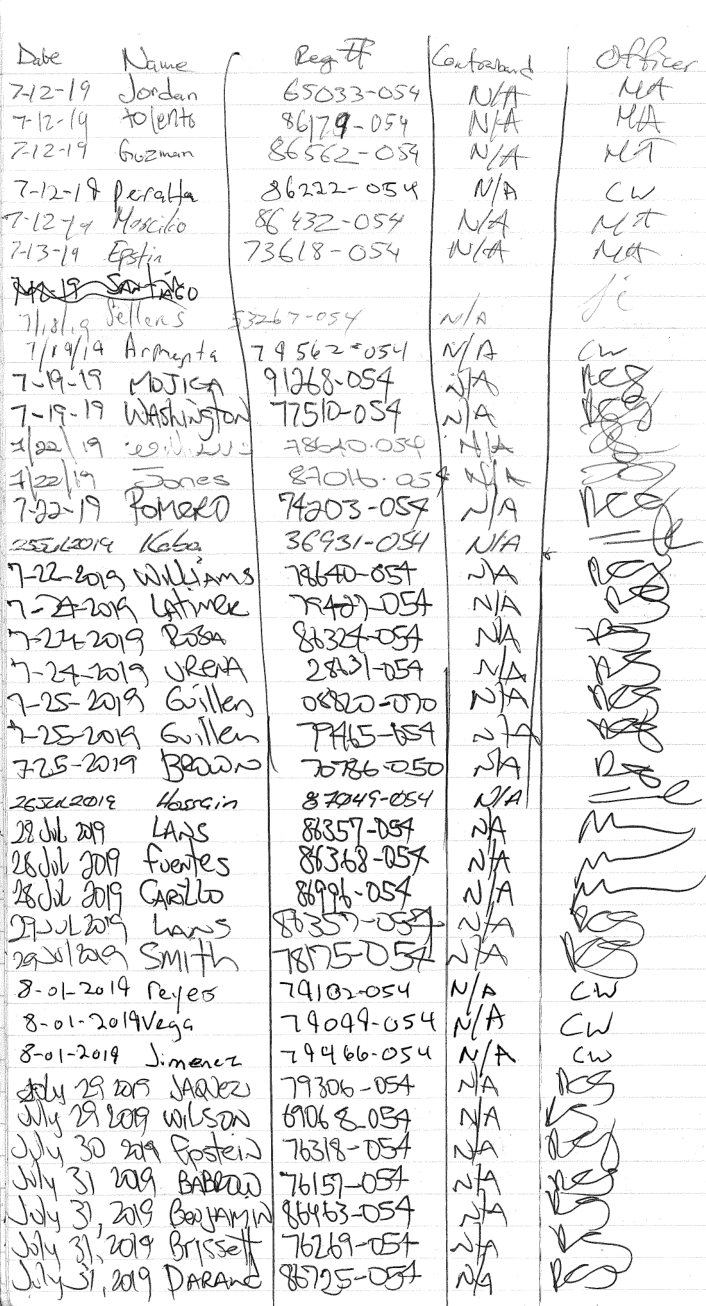 Date Name Reg # Contraband Officer
7-12-19 Jordan 65033-054 N/A MA
7-12-19 tolento 86179-054 N/A MA
7-12-19 Guzman 86562-054 N/A MT
7-12-18 Peralta 86222-054 N/A CW
7-12-19 86432-054 N/A MA
7-13-19 Epstin 73618-054 N/A MA
19 SANTIAGO
7/18/19 Sellers 53267-054 N/A
7/19/19 Armenta 79562-054 N/A CW
7-19-19 MOJICA 91268-054 N/A
7-19-19 WASHINGTON 77510-054 N/A
7/22/19 78640-054 N/A
7/22/19 Jones 87016-054 N/A
7-22-19 ROMERO 74203-054 N/A
25Jul2019 Kaba 36931-054 N/A
7-22-2019 WILLIAMS 78640-054 N/A
7-24-2019 LATIMER 79427-054 N/A
7-24-2019 ROSA 86324-054 N/A
7-24-2019 URENA 28631-054 N/A
7-25-2019 Guillen 08820-070 N/A
7-25-2019 Guillen 79465-054 N/A
7-25-2019 BROWN 70786-050 N/A
26JUL2019 Hossain 87049-054 N/A
28 Jul 2019 LANS 86357-054 N/A
28 Jul 2019 fuentes 86368-054 N/A
28 Jul 2019 CARILLO 86996-054 N/A
29 JUL 2019 LANS 86357-054 N/A
29 Jul 2019 SMITH 78175-054 N/A
8-01-2019 reyes 79102-054 N/A CW
8-01-2019 Vega 79099-054 N/A CW
8-01-2019 Jimenez 79466-054 N/A CW
July 29 2019 JAQUEZ 79306-054 N/A
July 29 2019 WILSON 69068-054 N/A
July 30 2019 Epstein 76318-054 N/A
July 31 2019 76157-054 N/A
July 31, 2019 BENJAMIN 86463-054 N/A
July 31, 2019 Brissett 76269-054 N/A
July 31, 2019 86725-054 N/A